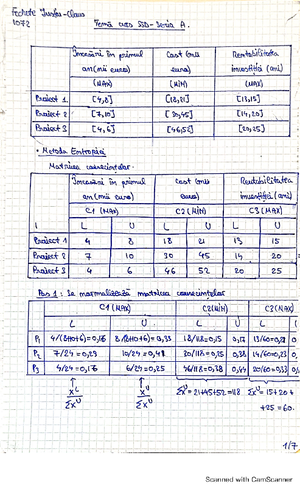 1072
Temă curs SSD - Seria A.
Încasări în primul Cost (mii Rentabilitatea
an (mii euro) euro) investiției (ani)
(MAX) (MIN) (MAX)
Proiect 1 [4,8] [18,21] [13,15]
Proiect 2 [7,10] [30,45] [14,20]
Proiect 3 [4,6] [46,52] [20,25]
• Metoda Entropiei
Matricea consecințelor
Încasări în primul Cost (mii Rentabilitatea
an (mii euro) euro) investiției (ani)
C1 (MAX) C2 (MIN) C3 (MAX)
L U L U L U
Proiect 1 4 8 18 21 13 15
Proiect 2 7 10 30 45 14 20
Proiect 3 4 6 46 52 20 25
Pas 1: Se normalizează matricea consecințelor
C1 (MAX) C2 (MIN) C3 (MAX)
L U L U L
P1 4/(8+10+6)=0,16 8/(8+10+6)=0,33 18/118=0,15 0,17 13/60=0,21 0,
P2 7/24=0,29 10/24=0,41 30/118=0,25 0,38 14/60=0,23 0,
P3 4/24=0,16 6/24=0,25 46/118=0,38 0,44 20/60=0,33 0,
X^L X^U Σx^U=21+45+52=118 Σx^U=15+20+
Σx^U Σx^U +25=60.
1/7
Scanned with CamScanner